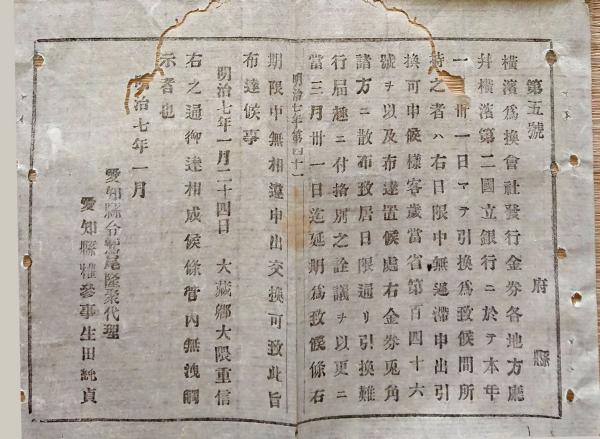 第五號
府縣
橫濱爲換會社發行金券各地方廳
幷橫濱第二國立銀行ニ於テ本年
一月卅一日マテ引換爲致候間所
持之者ハ右日限中無遲滯申出引
換可申候樣客歲當省第百四十六
號ヲ以及布達置候處右金券兎角
諸方ニ散布致居日限通リ引換難
行屆趣ニ付格別之詮議ヲ以更ニ
當三月卅一日迄延期爲致候條右
明治七年第四十一
期限中無相違申出交換可致此旨
布達候事
明治七年一月二十四日 大藏卿大隈重信
右之通御達相成候條管內無洩觸
示者也
明治七年一月
愛知縣令鷲尾隆聚代理
愛知縣權參事生田純貞